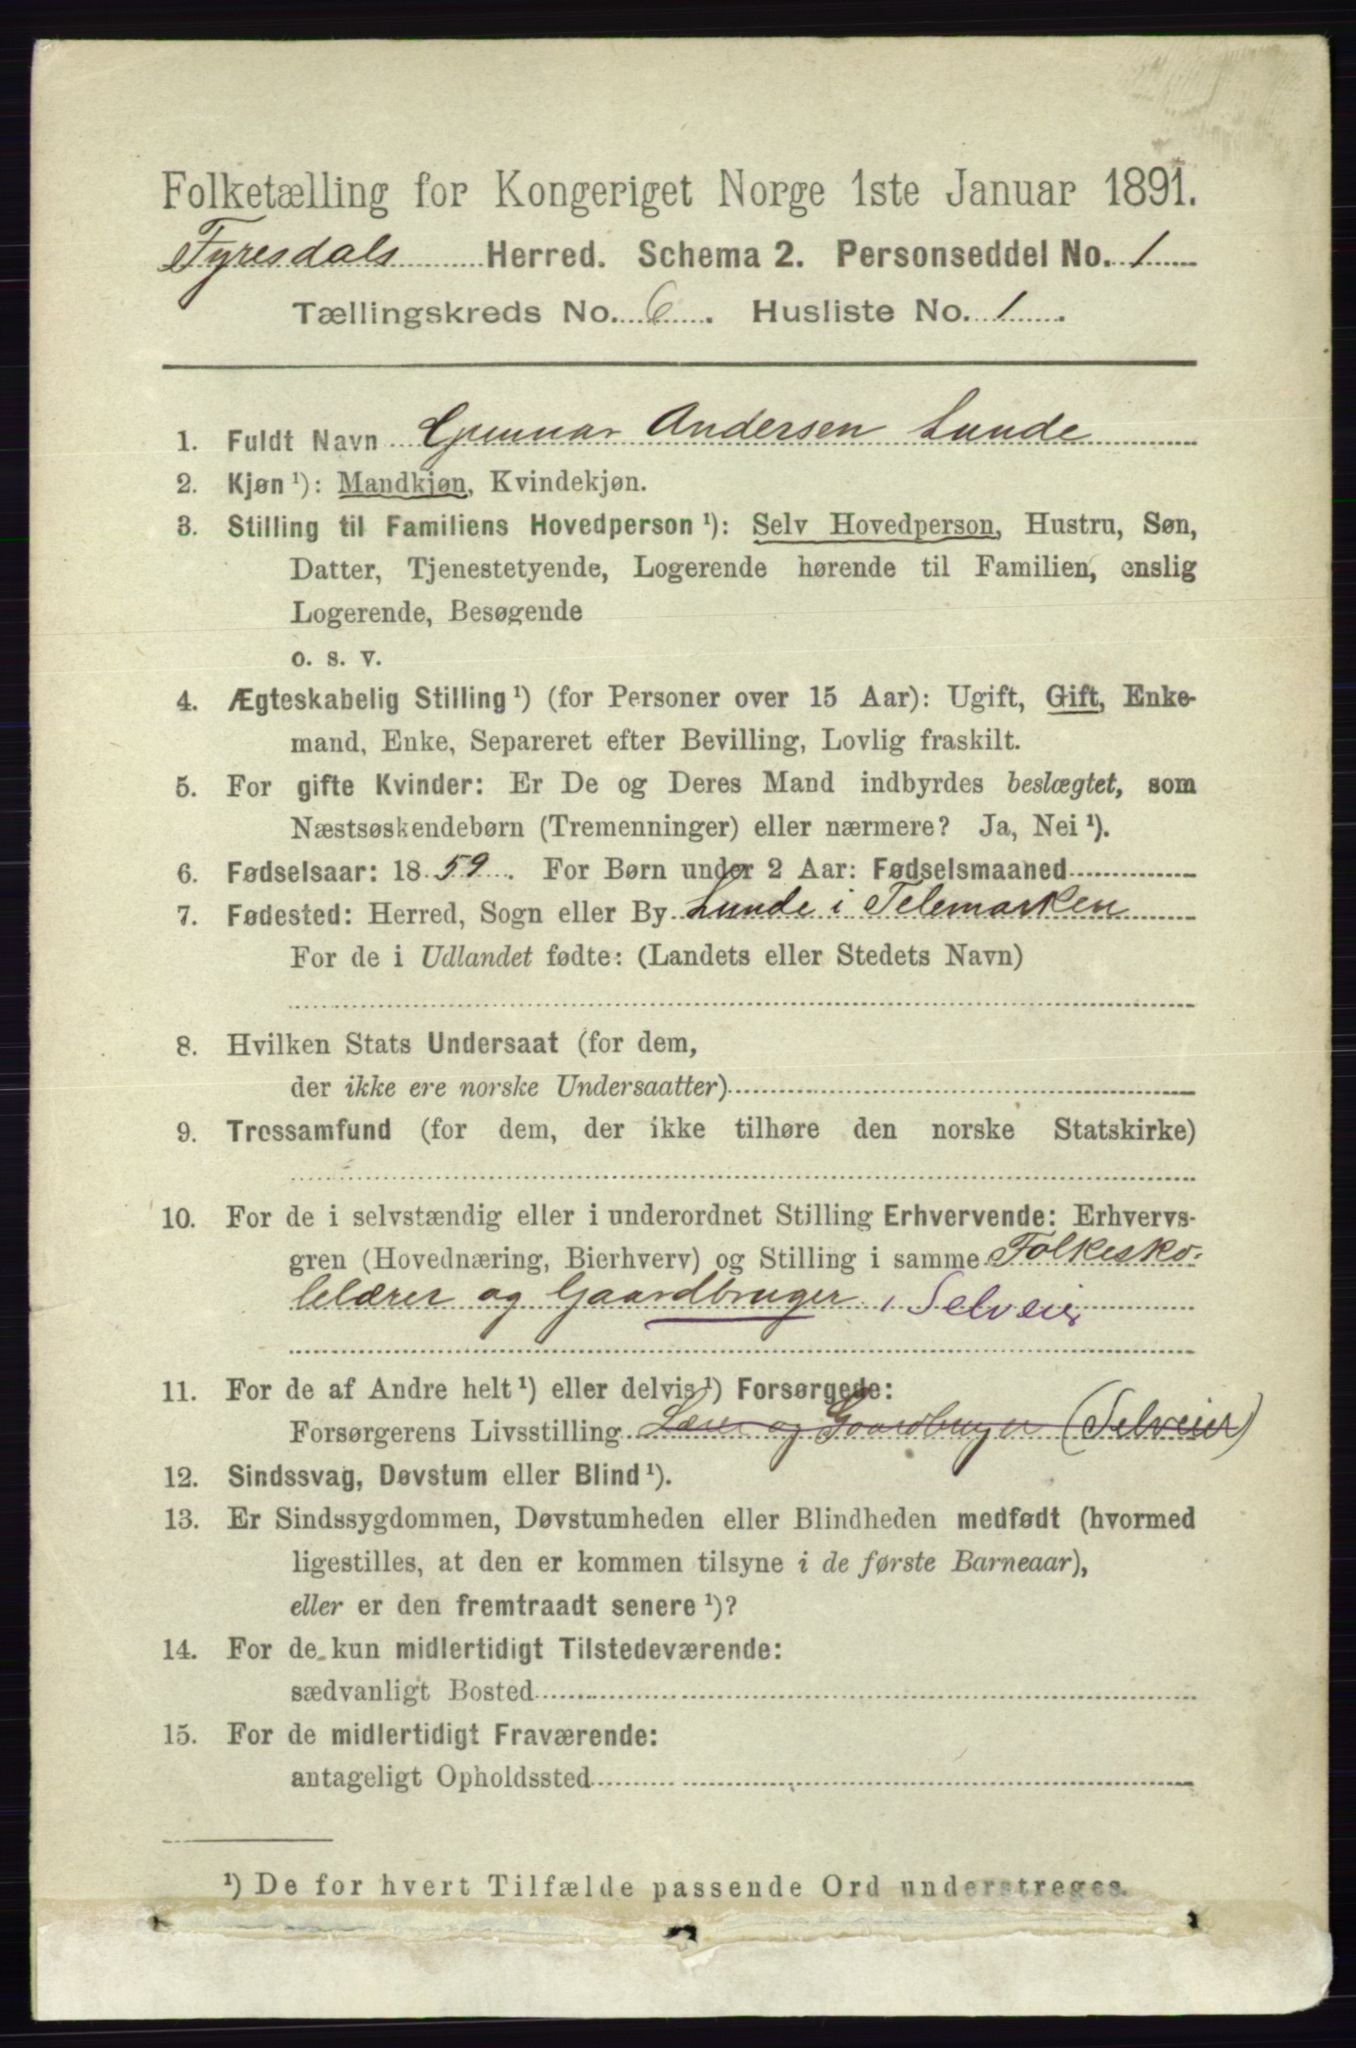 Folketælling for Kongeriget Norge 1ste Januar 1891.
Tyresdals Herred. Schema 2. Personseddel No. 1
Tællingskreds No. 6. Husliste No. 1.
1. Fuldt Navn Gunnar Andersen Lunde
2. Kjøn ¹): Mandkjøn, Kvindekjøn.
3. Stilling til Familiens Hovedperson ¹): Selv Hovedperson, Hustru, Søn,
Datter, Tjenestetyende, Logerende hørende til Familien, enslig
Logerende, Besøgende
o. s. v.
4. Ægteskabelig Stilling ¹) (for Personer over 15 Aar): Ugift, Gift, Enke-
mand, Enke, Separeret efter Bevilling, Lovlig fraskilt.
5. For gifte Kvinder: Er De og Deres Mand indbyrdes beslægtet, som
Næstsøskendebørn (Tremenninger) eller nærmere? Ja, Nei ¹).
6. Fødselsaar: 1859. For Børn under 2 Aar: Fødselsmaaned
7. Fødested: Herred, Sogn eller By Lunde i Telemarken
For de i Udlandet fødte: (Landets eller Stedets Navn)
8. Hvilken Stats Undersaat (for dem,
der ikke ere norske Undersaatter)
9. Trossamfund (for dem, der ikke tilhøre den norske Statskirke)
10. For de i selvstændig eller i underordnet Stilling Erhvervende: Erhvervs-
gren (Hovednæring, Bierhverv) og Stilling i samme Folkesko-
lelærer og Gaardbruger, Selveier
11. For de af Andre helt ¹) eller delvis ¹) Forsørgede:
Forsørgerens Livsstilling Lærer og Gaardbruger (Selveier)
12. Sindssvag, Døvstum eller Blind ¹).
13. Er Sindssygdommen, Døvstumheden eller Blindheden medfødt (hvormed
ligestilles, at den er kommen tilsyne i de første Barneaar),
eller er den fremtraadt senere ¹)?
14. For de kun midlertidigt Tilstedeværende:
sædvanligt Bosted
15. For de midlertidigt Fraværende:
antageligt Opholdssted
¹) De for hvert Tilfælde passende Ord understreges.